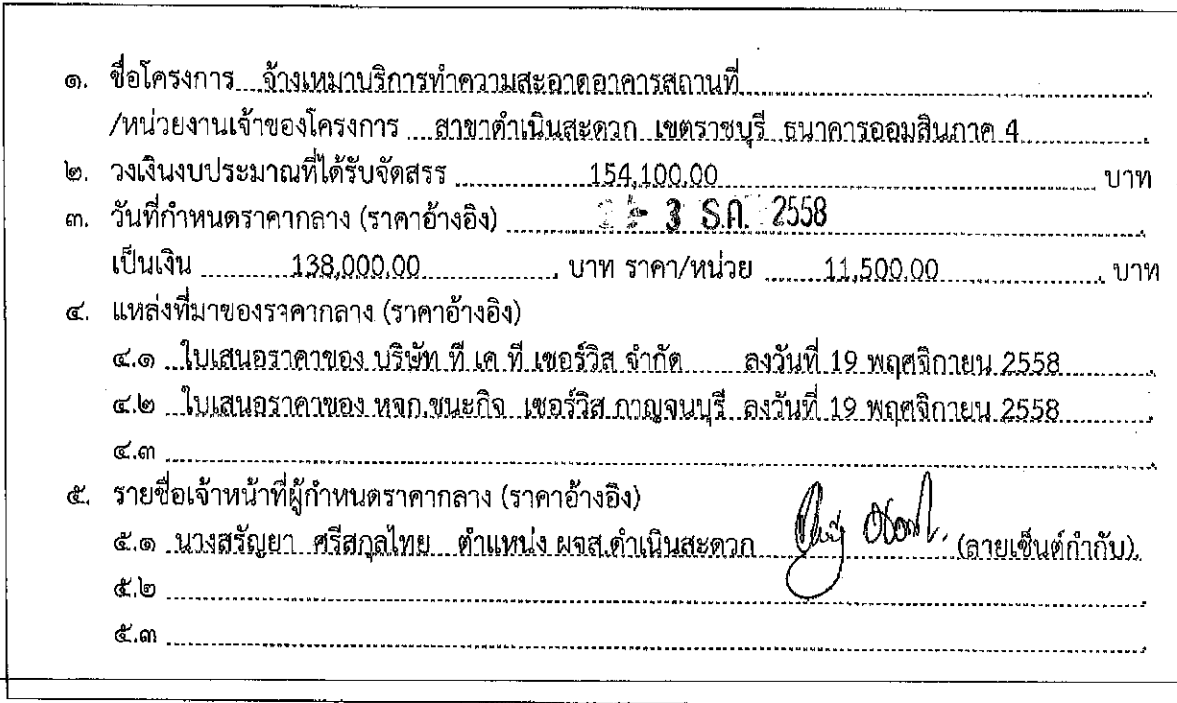 ๑. ชื่อโครงการ จ้างเหมาบริการทำความสะอาดอาคารสถานที่
/หน่วยงานเจ้าของโครงการ สาขาดำเนินสะดวก เขตราชบุรี ธนาคารออมสินภาค 4
๒. วงเงินงบประมาณที่ได้รับจัดสรร 154,100.00 บาท
๓. วันที่กำหนดราคากลาง (ราคาอ้างอิง) - 3 ธ.ค. 2558
เป็นเงิน 138,000.00 บาท ราคา/หน่วย 11,500.00 บาท
๔. แหล่งที่มาของราคากลาง (ราคาอ้างอิง)
๔.๑ ใบเสนอราคาของ บริษัท ที เค ที เซอร์วิส จำกัด ลงวันที่ 19 พฤศจิกายน 2558
๔.๒ ใบเสนอราคาของ หจก.ชนะกิจ เซอร์วิส กาญจนบุรี ลงวันที่ 19 พฤศจิกายน 2558
๔.๓
๕. รายชื่อเจ้าหน้าที่ผู้กำหนดราคากลาง (ราคาอ้างอิง)
๕.๑ นางสรัญยา ศรีสกุลไทย ตำแหน่ง ผจส.ดำเนินสะดวก (ลายเซ็นต์กำกับ)
๕.๒
๕.๓